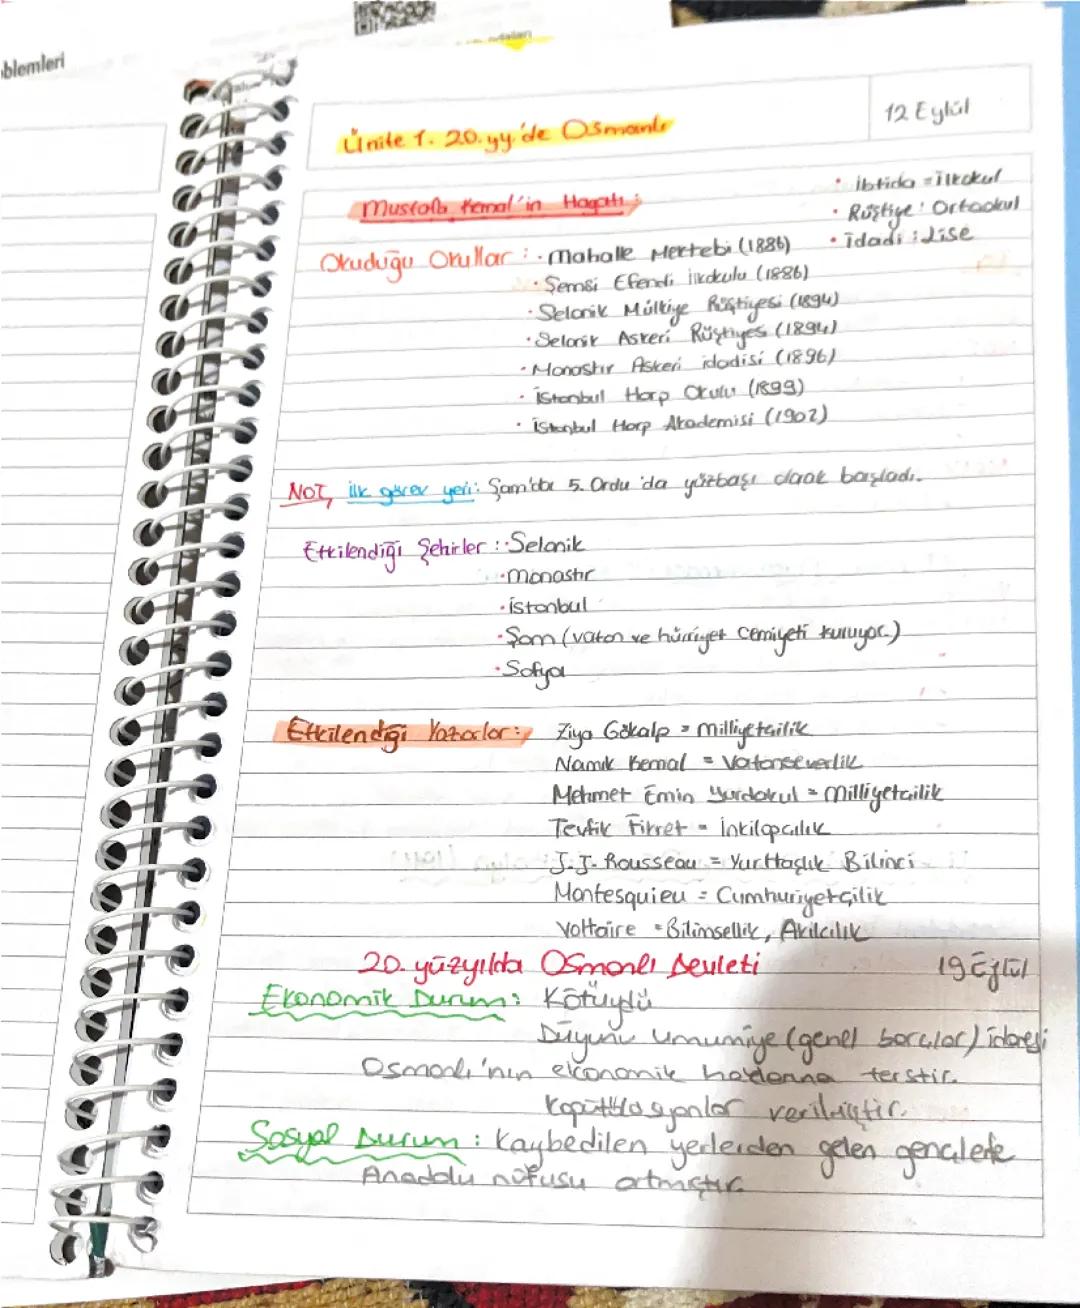 blemleri
12 Eylül
Ünite 1. 20. yy.'de Osmanlı
Mustafa Kemal'in Hayatı:
• ibtida = ilkokul
• Rüştiye: Ortaokul
• idadi: Lise
Okuduğu Okullar: • Mahalle Mektebi (1886)
• Şemsi Efendi İlkokulu (1886)
• Selanik Mülkiye Rüştiyesi (1894)
• Selanik Askeri Rüştiyes (1894)
• Manastır Askeri idadisi (1896)
• İstanbul Harp Okulu (1899)
• İstanbul Harp Akademisi (1902)
NOT, ilk görev yeri: Şam'da 5. Ordu'da yüzbaşı olarak başladı.
Etkilendiği Şehirler: • Selanik
• Manastır
• İstanbul
• Şam (vatan ve hürriyet cemiyeti kuruyor.)
• Sofya
Etkilendiği Yazarlar: Ziya Gökalp = Milliyetçilik
Namık Kemal = Vatanseverlik
Mehmet Emin Yurdakul = Milliyetçilik
Tevfik Fikret = İnkilapçılık
J.J. Rousseau = Yurttaşlık Bilinci
Montesquieu = Cumhuriyetçilik
Voltaire = Bilimsellik, Akılcılık
20. yüzyılda Osmanlı Devleti 19 Eylül
Ekonomik Durum: Kötüydü
Düyunu Umumiye (genel borçlar) idaresi
Osmanlı'nın ekonomik haklarına terstir.
Kapütülasyonlar verilmiştir.
Sosyal Durum: Kaybedilen yerlerden gelen gençlerle
Anadolu nüfusu artmıştır.